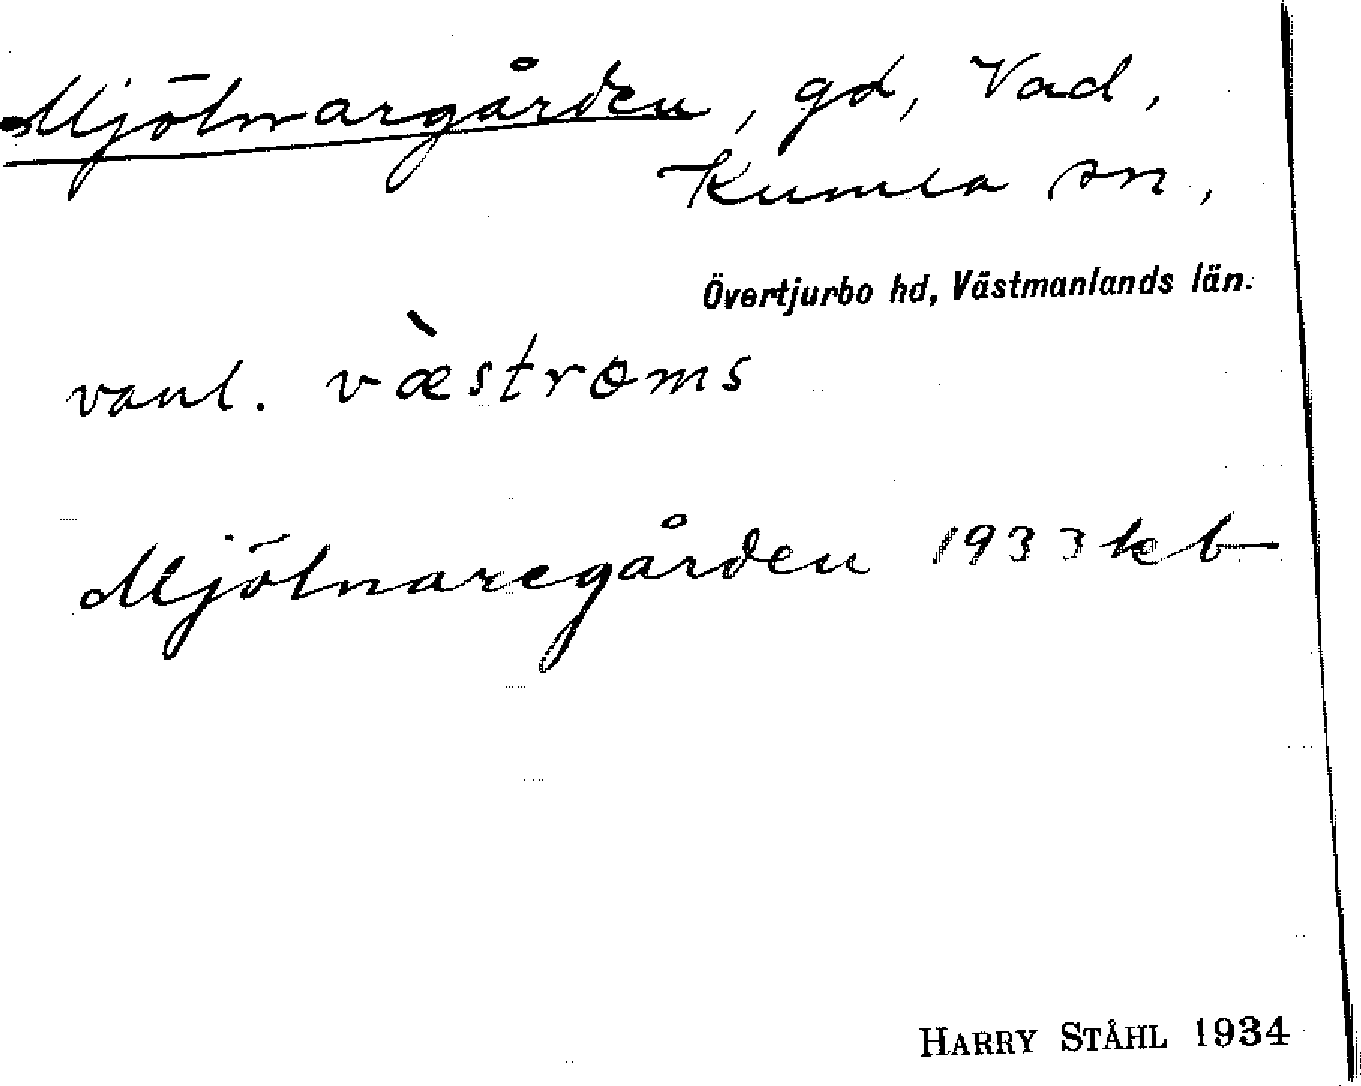 Mjölnargården, gd, Vad,
Kumla sn,
Övertjurbo hd, Västmanlands län.
vanl. væ̀strɵms
Mjölnaregården 1933 kb
HARRY STÅHL 1934